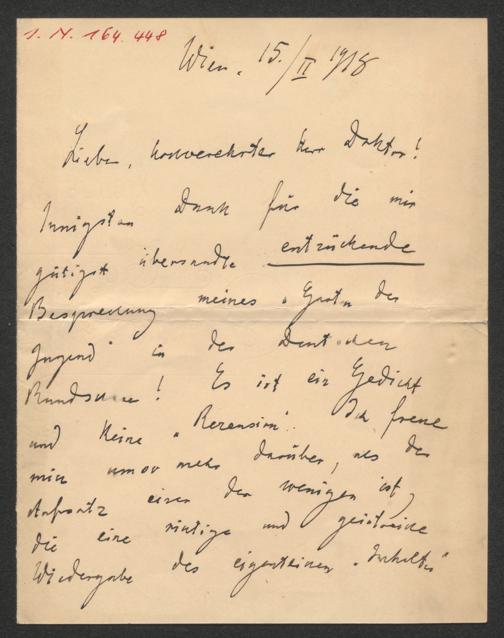 I. N. 164.448
Wien, 15./II 1918
Lieber, hochverehrter Herr Doktor!
Innigsten Dank für die mir
gütigst übersandte entzückende
Besprechung meines „ der
Jugend" in der Deutschen
Rundschau! Es ist ein Gedicht
und keine „Rezension". Ich freue
mich umso mehr darüber, als der
Aufsatz einer der wenigen ist,
die eine richtige und geistreiche
Wiedergabe des eigentlichen „Inhaltes"